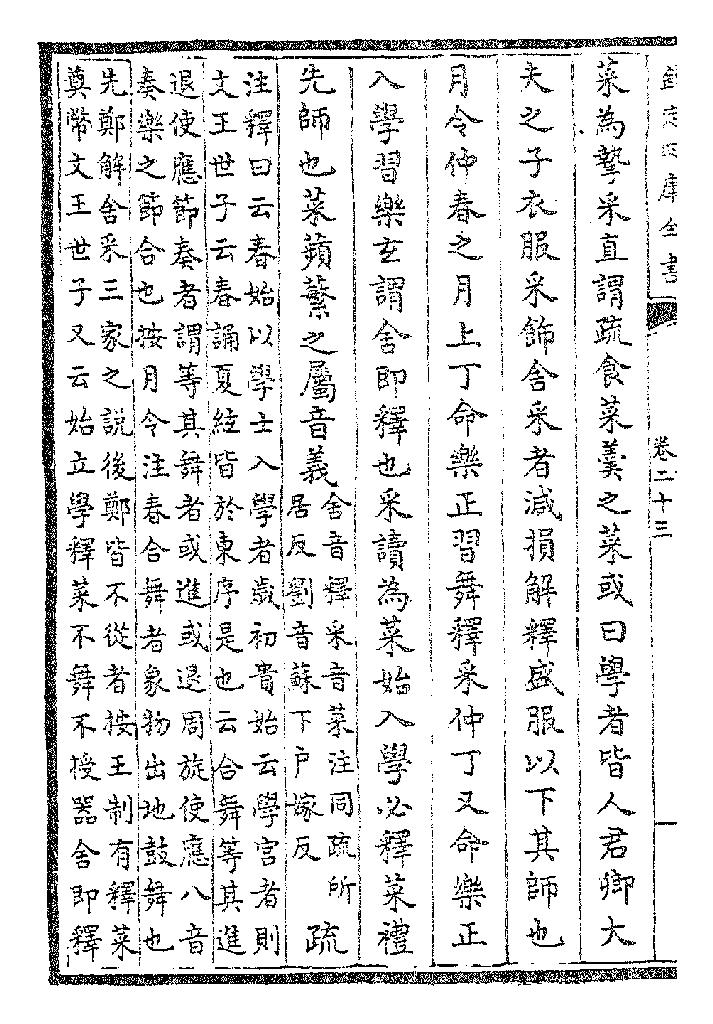 欽定四庫全書
卷二十三
菜為摯采直謂疏食菜羹之菜或曰學者皆人君卿大
夫之子衣服采飾舍采者減損解釋盛服以下其師也
月令仲春之月上丁命樂正習舞釋采仲丁又命樂正
入學習樂玄謂舍即釋也采讀為菜始入學必釋菜禮
先師也菜蘋蘩之屬音義
舍音釋采音菜注同疏所
居反劉音蘇下戶嫁反
疏
注釋曰云春始以學士入學者歲初貴始云學宫者則
文王世子云春誦夏絃皆於東序是也云合舞等其進
退使應節奏者謂等其舞者或進或退周旋使應八音
奏樂之節合也按月令注春合舞者象物出地鼓舞也
先鄭解舍采三家之説後鄭皆不從者按王制有釋菜
奠幣文王世子又云始立學釋菜不舞不授器舍即釋